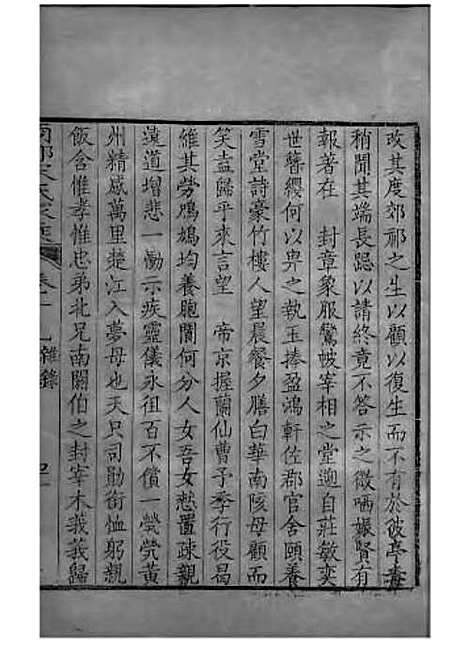 改其度郊祁之生以顧以復生而不有於彼亭毒
稍聞其端長跽以請終竟不答示之微哂嫄賢有
報著在　封章象服鸞帔宰相之堂迦自莊敏奕
世簪纓何以畁之執玉捧盈鴻軒佐郡官舍頤養
雪堂詩豪竹樓人望晨餐夕膳白華南陔母顧而
笑盍歸乎來言望　帝京握蘭仙曹予季行役曷
維其勞鳲鳩均養胞闈何分人女吾女慭置疎親
遠道增悲一慟示疾靈儀永徂百不償一煢煢黃
州精感萬里楚江入夢母也天只司勛銜恤躬親
飯含惟孝惟忠弟北兄南闕伯之封宰木莪莪歸
卷十一 雜錄